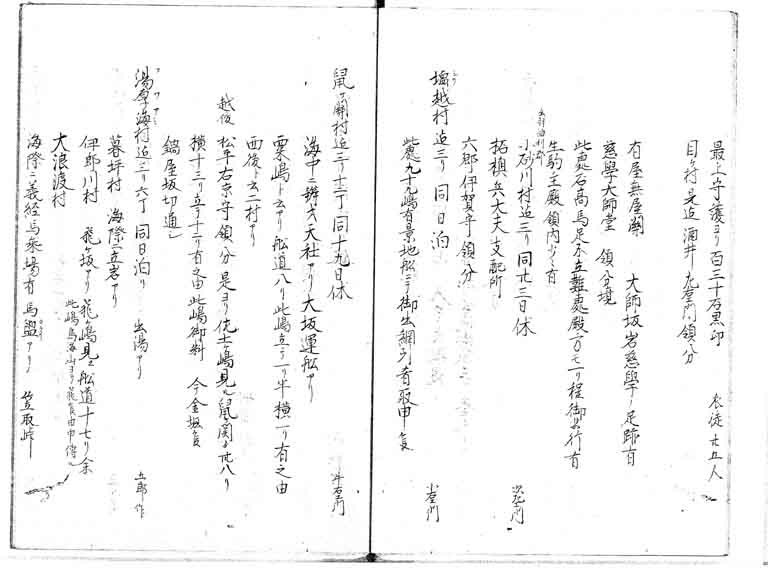 最上守護ヨリ百三十石黒印 衆徒廿五人
目々村 是迄酒井左衛門領分
有屋無屋關 大師坂岩慈學ノ足跡有
慈學大師堂 領分境
此處石高馬足不立難處殿方モ一リ程御歩行有
生駒主殿領内少々有
小砂川村迄三リ 同廿三日休
六郷伊賀守領分
塩越村迄三リ 同日泊
此處九十九嶋有景地船ニテ御出網引者取申候
鼠ヶ關村迄三リ十二丁 同十九日休
海中ニ辨才天社アリ 大坂運船アリ
粟嶋ト云アリ 船道八リ此嶋立テ一リ半横一リ有之由
西後ト云二村アリ
越後 松平右京守領分 是ヨリ佐土ヶ嶋見ル鼠関ゟ廿八リ
横十三リ立テ十二リ有之由此嶋御料 今金坂候
鍋屋坂切通シ
湯厚海村迄三リ六丁 同日泊リ 出湯アリ 五郎作
暮坪村 海際ニ立岩アリ
伊郎川村 飛ヶ坂アリ 飛嶋見ル船道十七リ余
大浪渡村
海際ニ義経馬乗場有馬盥アリ 笠取峠